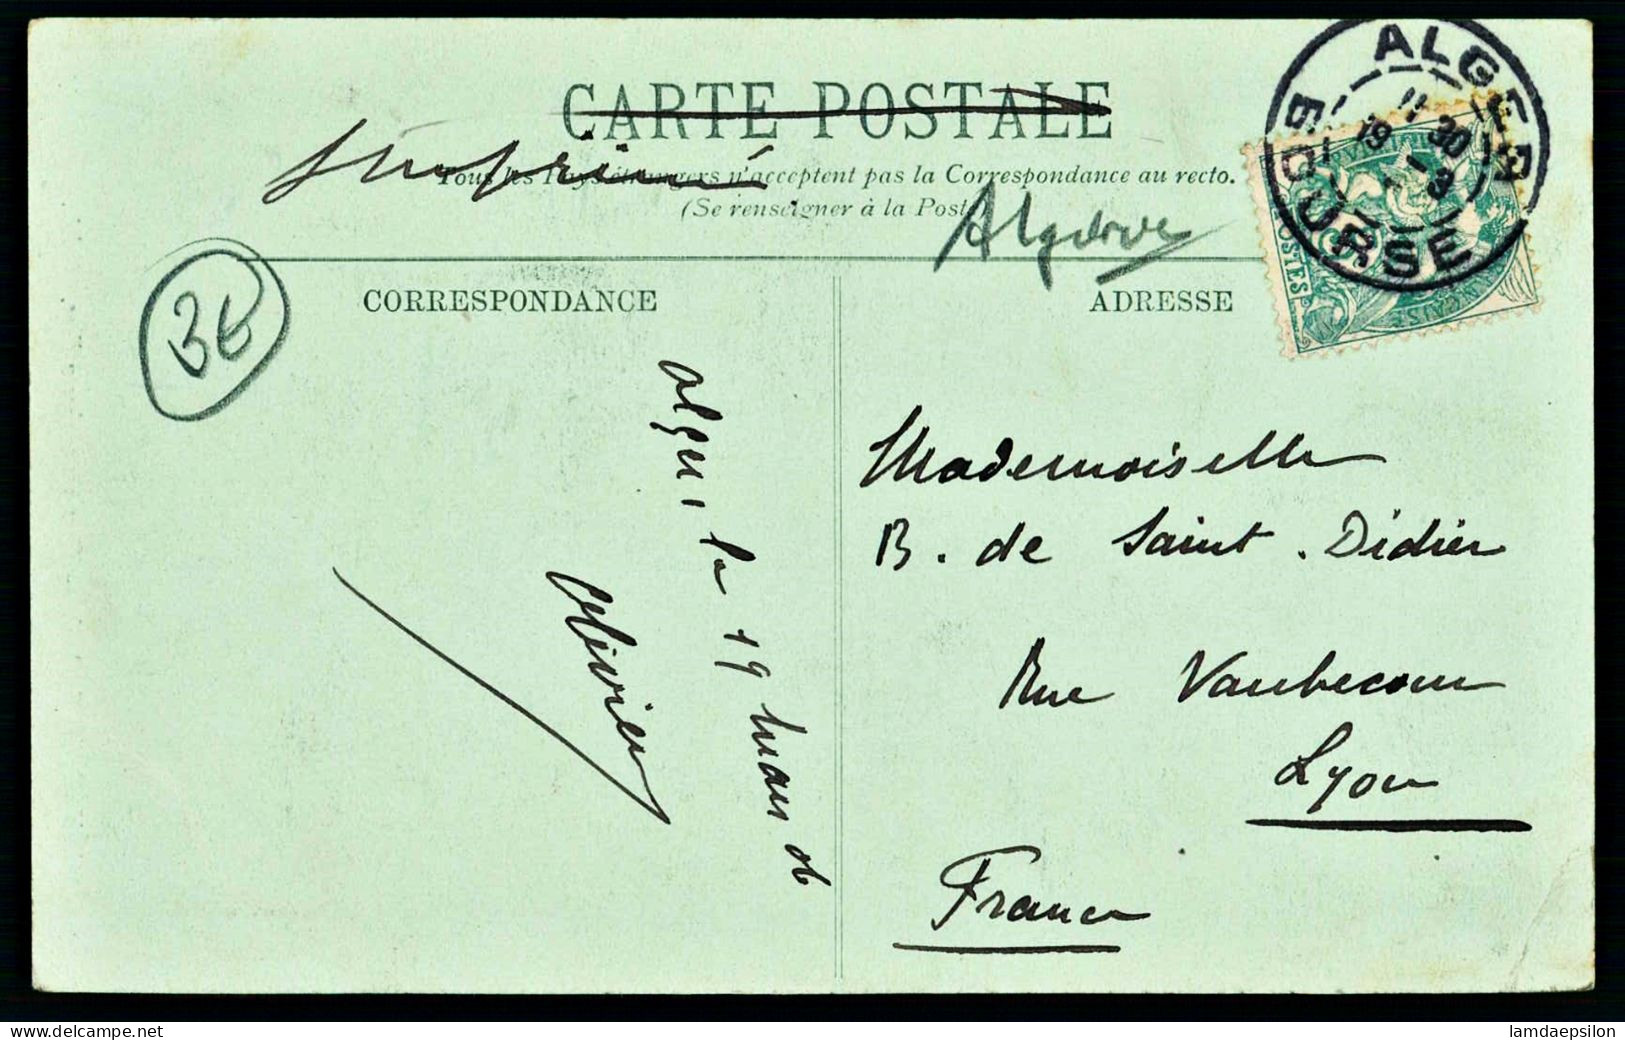 CARTE POSTALE
Imprimé
Tous les Pays étrangers n'acceptent pas la Correspondance au recto.
(Se renseigner à la Poste)
Algérie
ALGER
BOURSE
11 30
19 3
POSTES
3€
CORRESPONDANCE
ADRESSE
Alger le 19 mars 06
Olivier
Mademoiselle
B. de Saint. Didier
Rue Vaubecour
Lyon
France
delcampe.net
lamdaepsilon